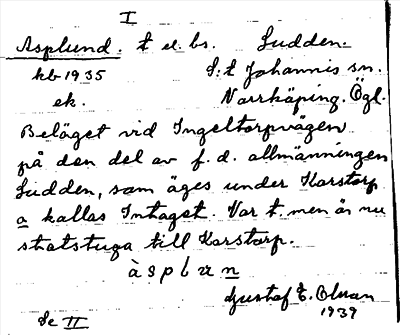 I
Asplund. t el. bs. Sudden.
kb 1935 S:t Johannis sn.
ek. Norrköping. Ögl.
Beläget vid Ingeltorpvägen
på den del av f. d. allmänningen
Sudden, som äges under Karstorp
a kallas Intaget. Var t. men är nu
statstuga till Karstorp.
àsplun
Gustaf E. Olman
1939
Se II